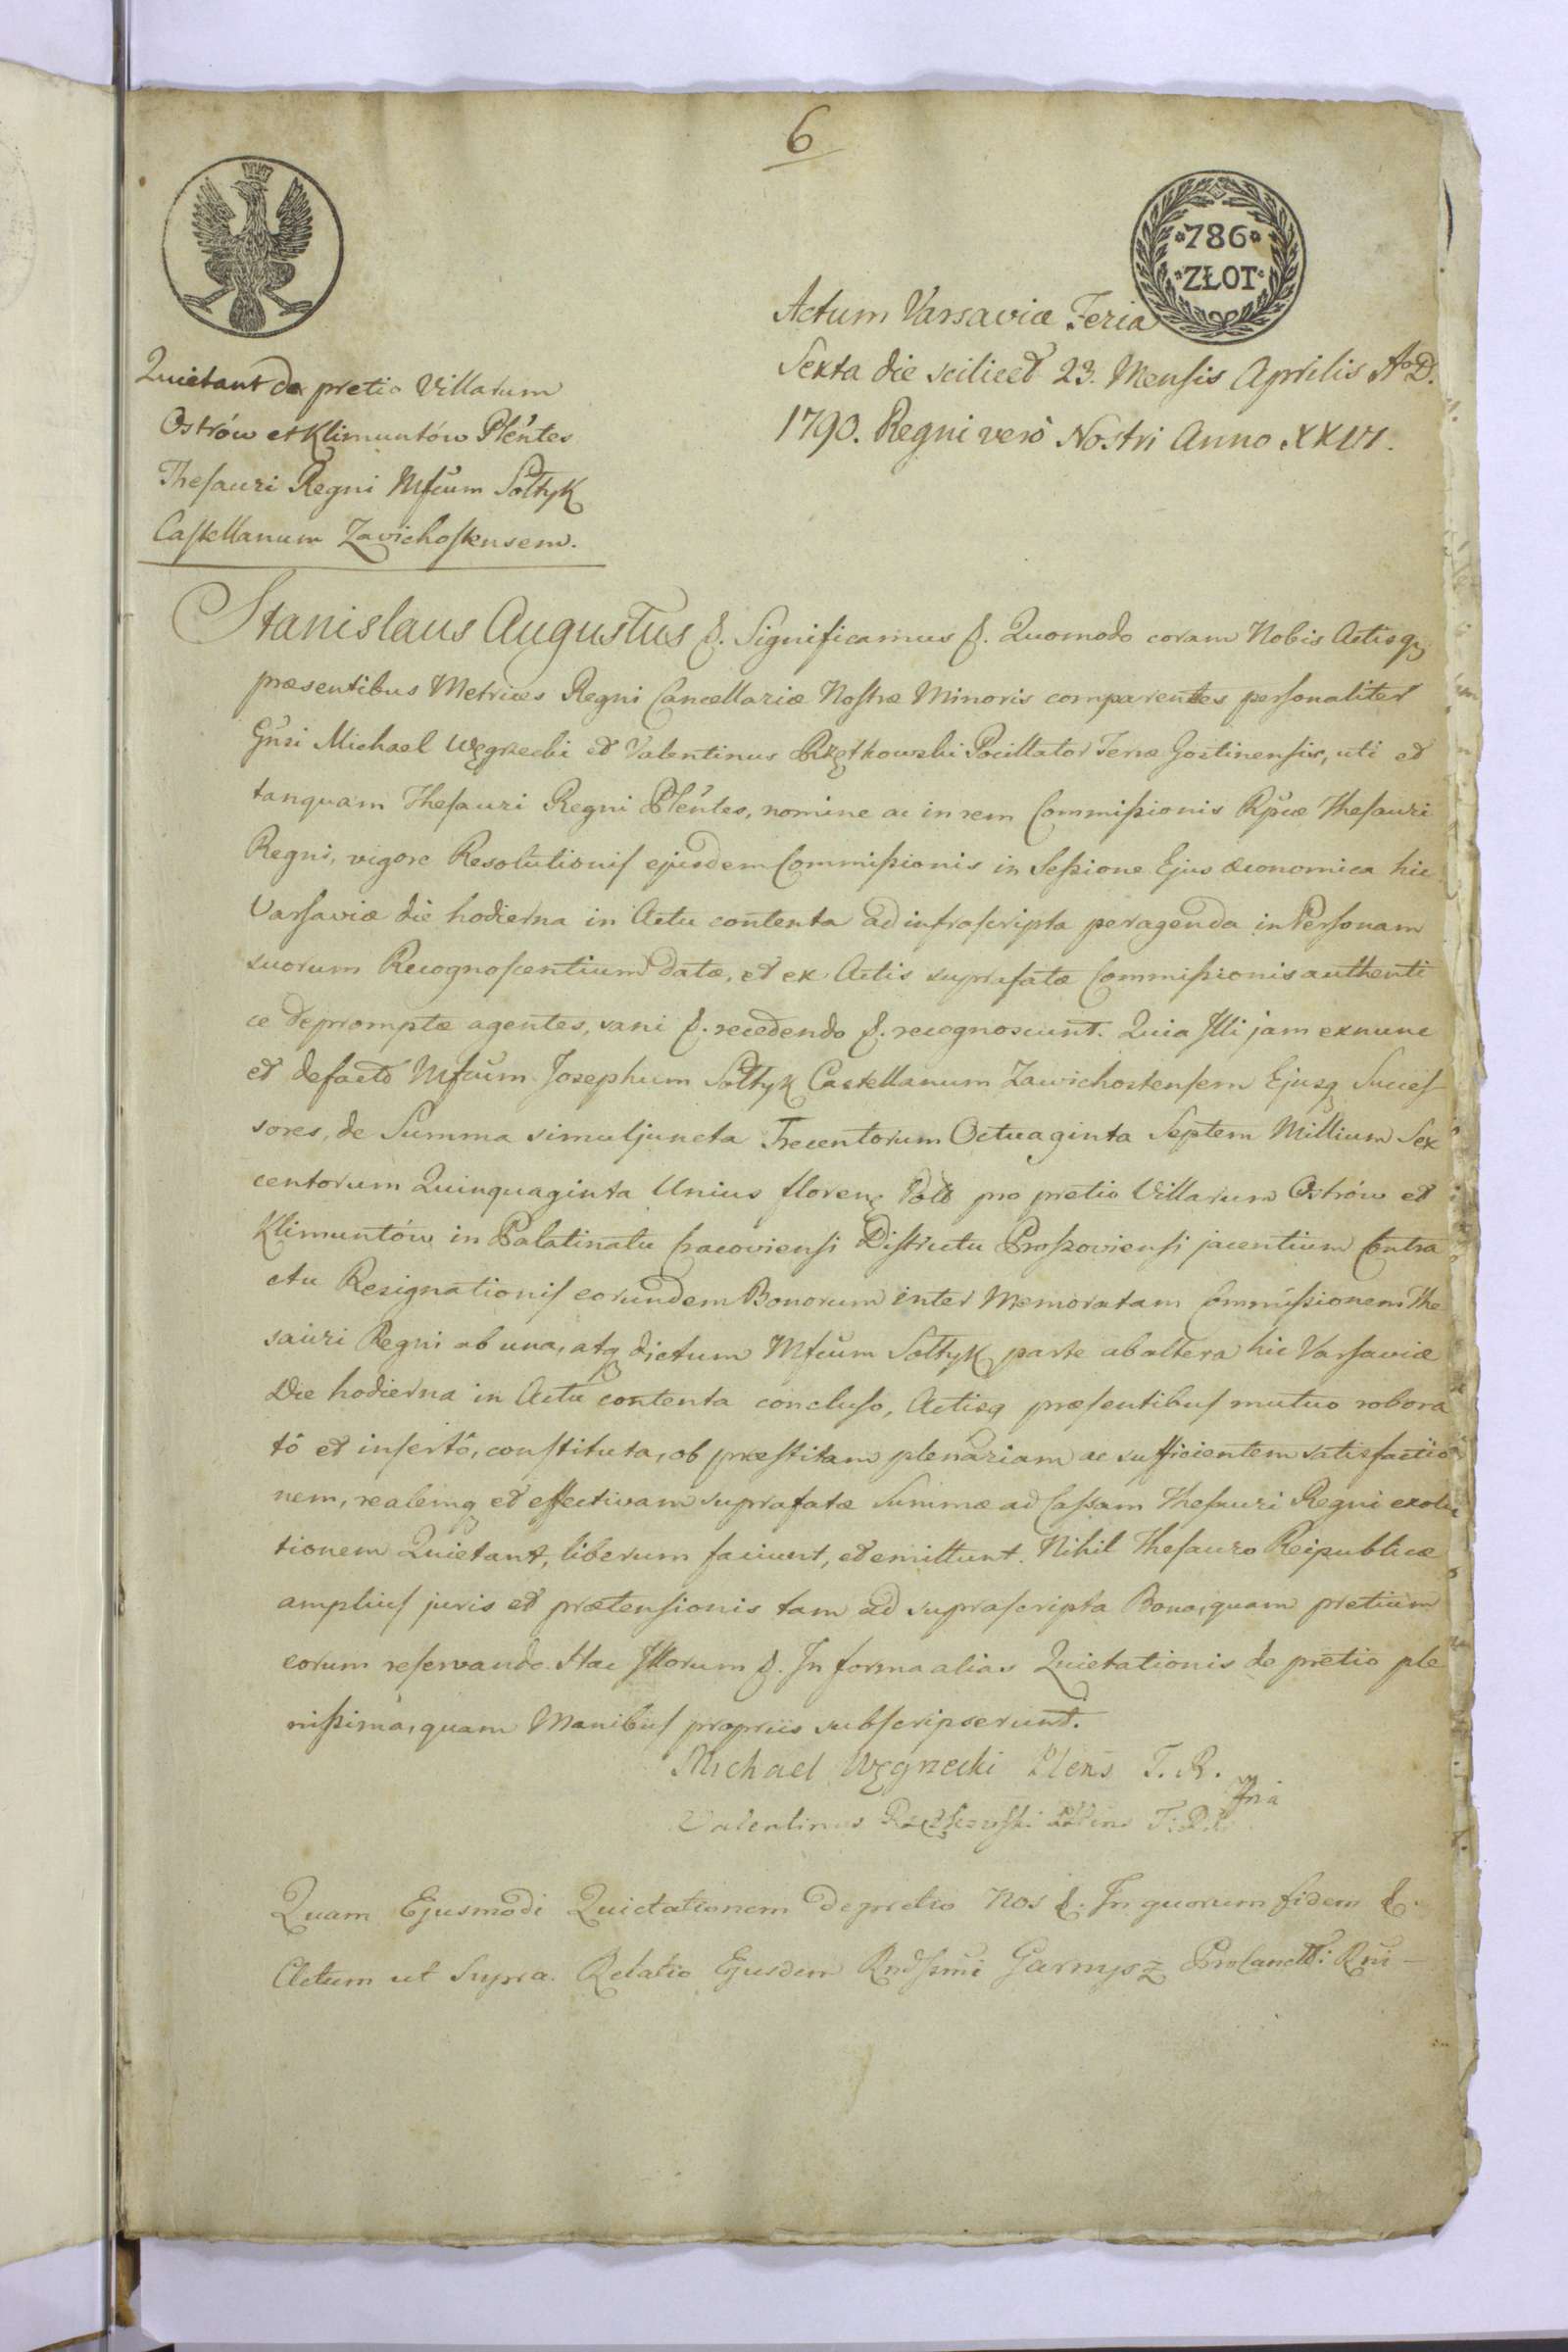 6
786
ZŁOT
Actum Varsaviæ Feria
Sexta die scilicet 23. Mensis Aprilis Ao D.
1790. Regni verò Nostri Anno XXVI.
Quietant de pretio Villarum
Ostrów et Klimuntów Pl'entes
Thesauri Regni Mfcum Sołtyk
Castellanum Zavichostensem.
Stanislaus Augustus &. Significamus &. Quomodo coram Nobis Actisq
præsentibus Metrices Regni Cancellariæ Nostræ Minoris comparentes personaliter
Gnsi Michael Węgrzecki et Valentinus Rzętkowski Pocillator Terræ Gostinensis, uti et
tanquam Thesauri Regni Pl'entes, nomine ac in rem Commissionis Rpcæ Thesauri
Regni, vigore Resolutionis ejusdem Commissionis in Sessione Ejus œconomica hic
Varsaviæ die hodierna in Actu contenta ad infrascripta peragenda in Personam
suorum Recognoscentium datæ, et ex Actis suprafatæ Commissionis authenti
ce depromptæ agentes, sani &. recedendo &. recognoscunt. Quia Illi jam exnunc
et defacto Mfcum Josephum Sołtyk Castellanum Zawichostensem Ejusq Succes-
sores, de Summa simuljuncta Trecentorum Octuaginta Septem Millium Sex
centorum Quinquaginta Unius floren Polo pro pretio Villarum Ostrów et
Klimuntów in Palatinatu Cracoviensi Districtu Proszoviensi jacentium Contra
ctu Resignationis eorundem Bonorum inter Memoratam Commissionem The
sauri Regni ab una, atq dictum Mfcum Sołtyk parte ab altera hic Varsaviæ
Die hodierna in Actu contenta concluso, Actisq præsentibus mutuo robora
tô et insertô, constituta, ob præstitam plenariam ac sufficientem satisfactio
nem, realemq et effectivam suprafatæ Summæ ad Cassam Thesauri Regni exolu
tionem Quietant, liberum faciunt, et emittunt. Nihil Thesauro Reipublicæ
amplius juris et prætensionis tam ad suprascripta Bona, quam pretium
eorum reservando. Hac Illorum &. In forma alias Quietationis de pretio ple
nissima, quam Manibus propriis subscripserunt.
Michael Węgrzecki Plens T. R.
Valentinus Rzętkowski T. R.
Quam Ejusmodi Quietationem de pretio Nos &. In quorum fidem &.
Actum ut Supra. Relatio Ejusdem Rndssimi Garnysz ProCancell: Rni -